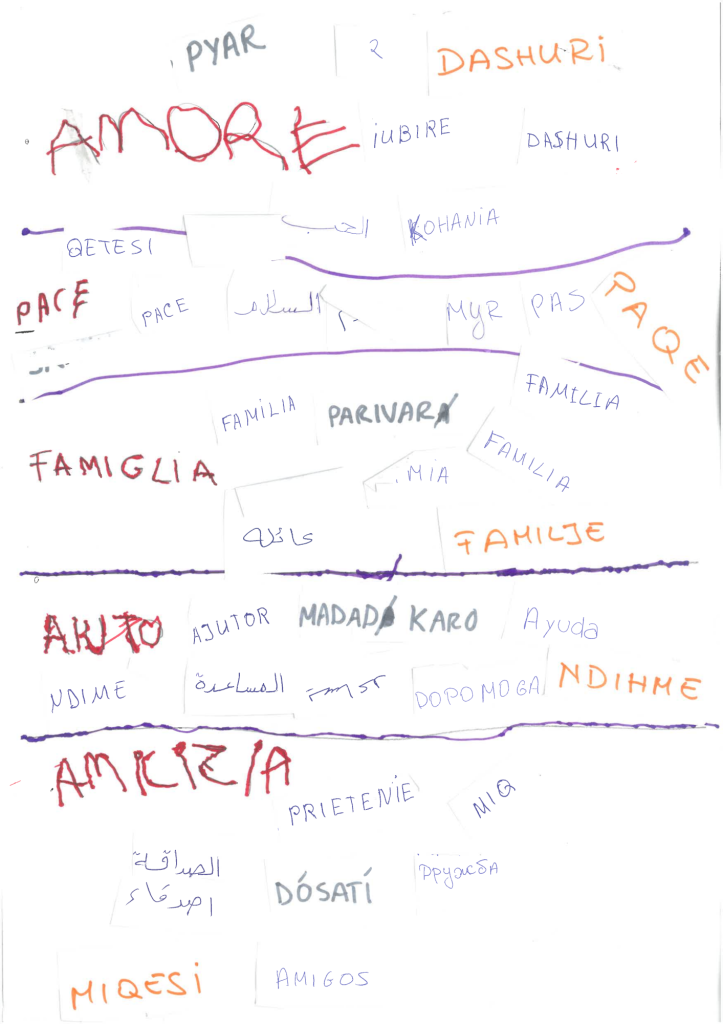 PYAR
DASHURI
AMORE
IUBIRE
DASHURI
الحب
KOHANIA
QETESI
PACE
PACE
السلام
MYR
PAS
PAQE
FAMILIA
PARIVAR
FAMILIA
FAMIGLIA
MIA
FAMILIA
عائلة
FAMILJE
AIUTO
AJUTOR
MADAD KARO
Ayuda
NDIME
المساعدة
DOPOMOGA
NDIHME
AMICIZIA
PRIETENIE
MIQ
الصداقة
اصدقاء
DÓSATÍ
дружба
MIQESI
AMIGOS